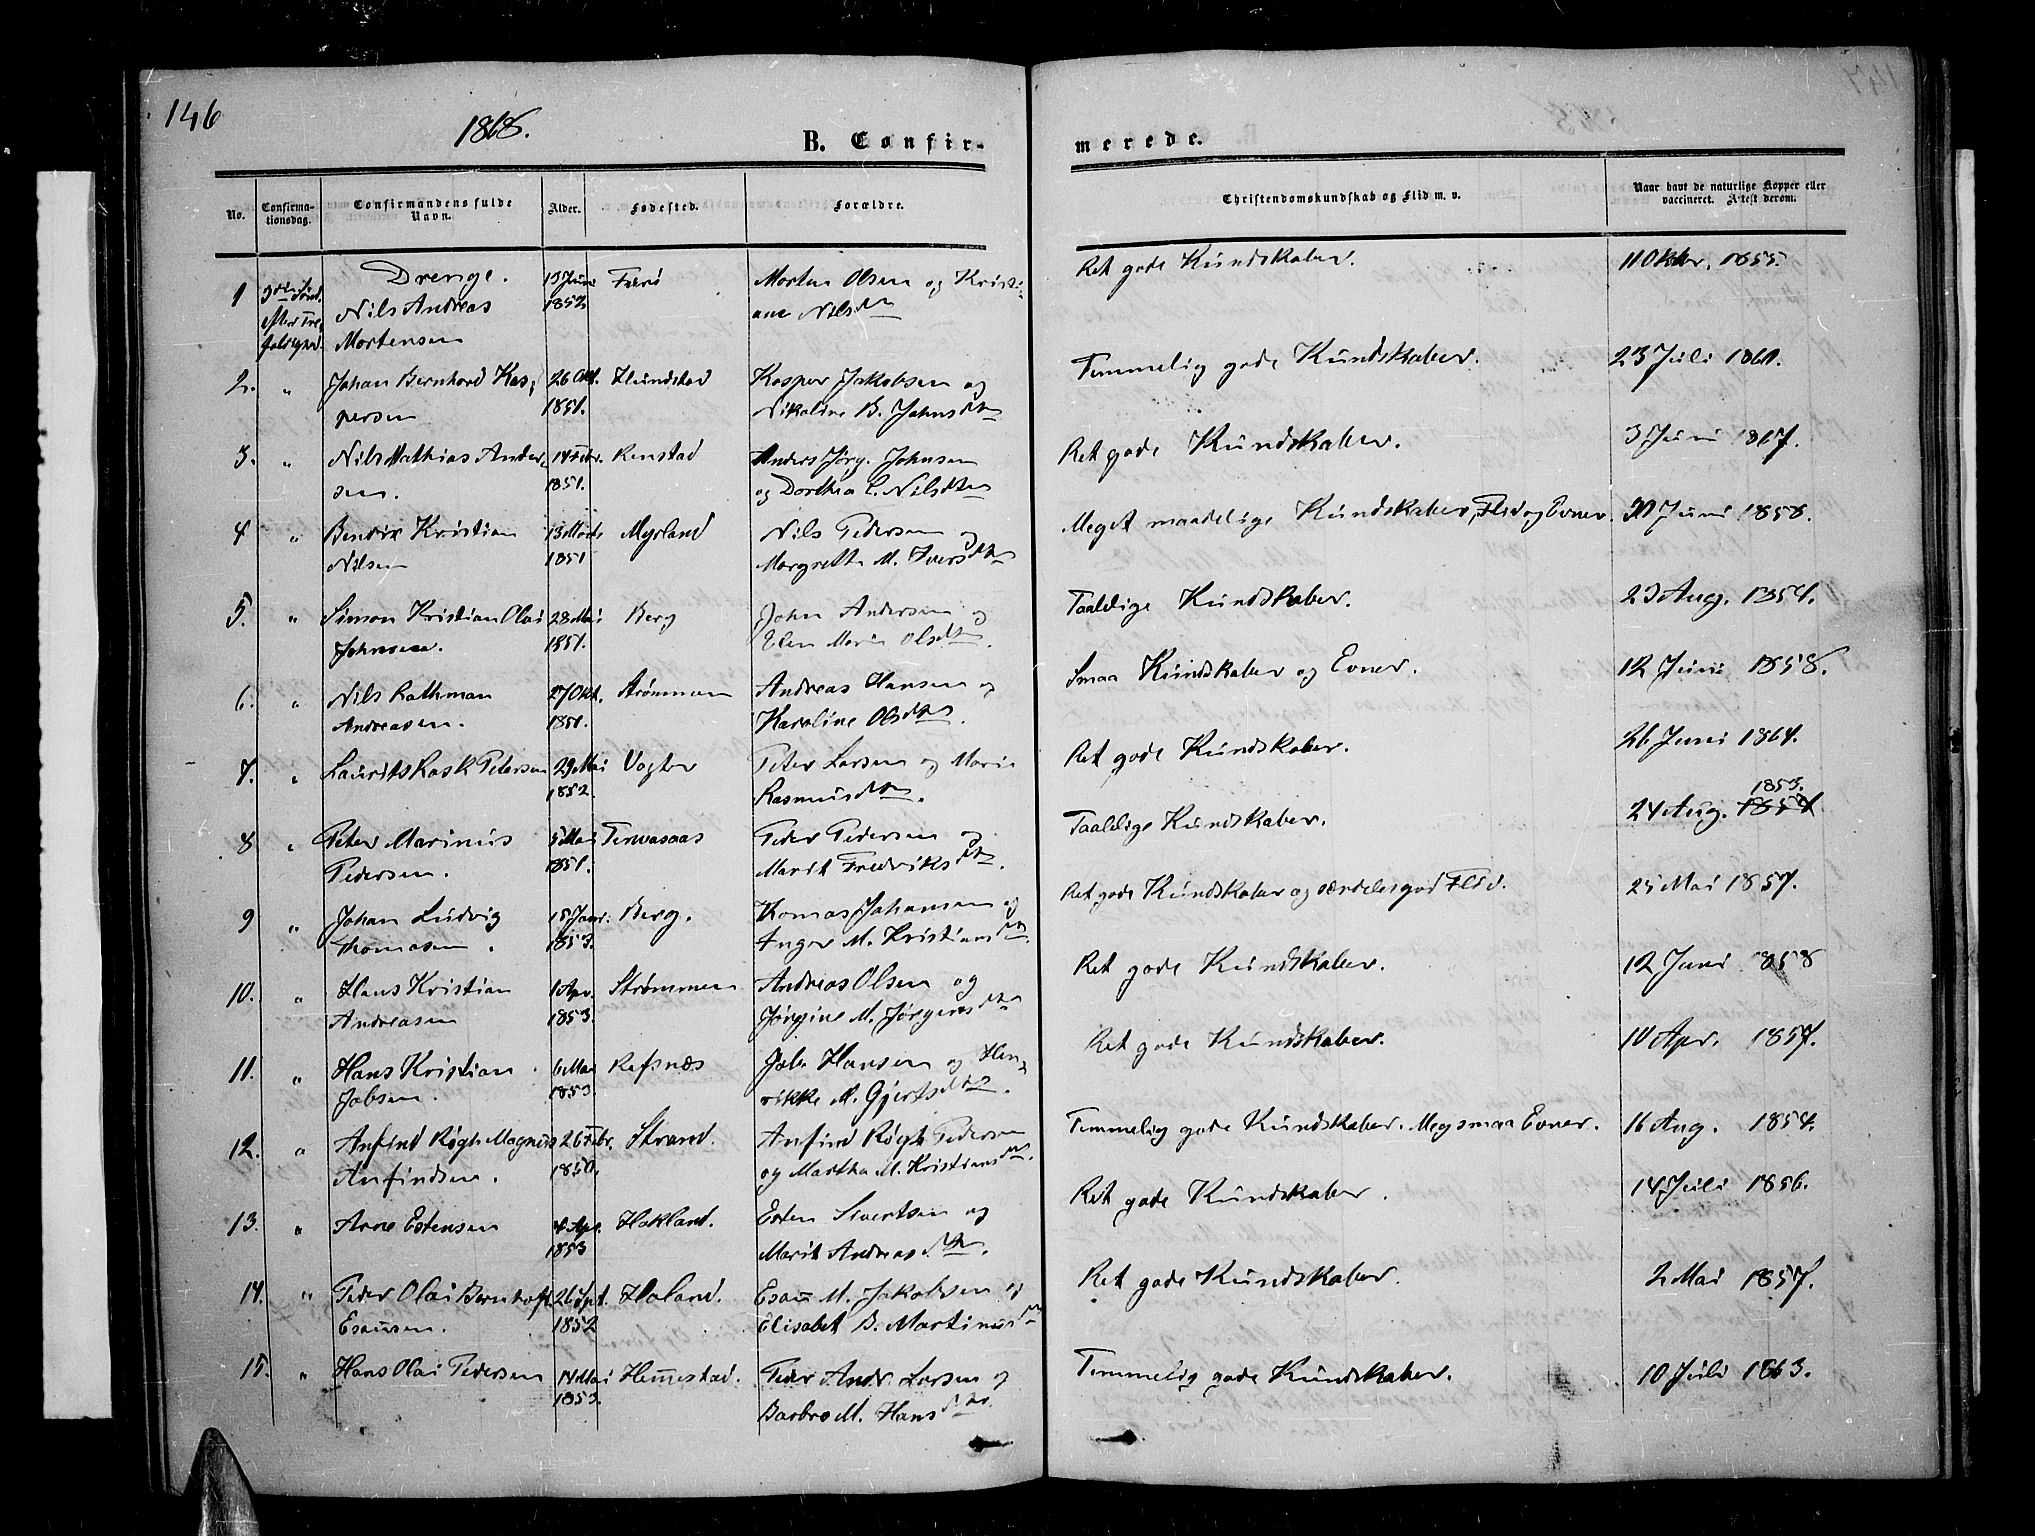 146
1868.
B. Confir-
merede.
No.
Confirma-
tionsdag.
Confirmandens fulde
Navn.
Alder.
Fødested.
Forældre.
Christendomskundskab og Flid m. v.
Naar havt de naturlige Kopper eller
vaccineret. Attest derom.
Drenge.
1 3die Sønd. Nils Andreas 13 Juni Morten Olsen og Kristi- Ret gode Kundskaber. 11 Oktbr. 1855.
efter Tre Mortensen 1852 ane Nilsdtr
2. " Johan Bernhard Kas- 26 Okt. Hundstad Kasper Jakobsen og Temmelig gode Kundskaber. 23 Juli 1861.
persen 1851. Nikoline B. Johnsdtr
3. " Nils Mathias Ander- 14 Febr. Renstad Anders Jørg. Johnsen Ret gode Kundskaber. 3 Juni 1867.
sen. 1851. og Dorthea L. Nilsdtr
4 " Bendix Kristian 13 Marts Myrland Nils Pedersen og Meget maadelige Kundskaber, Flid og Evner. Juni 1858.
Nilsen 1851 Margrethe M. Iversdtr
5. " Simon Kristian Olai 28 Mai Berg John Andersen og Taalelige Kundskaber. 23 Aug. 1854.
Johnsen. 1851. Elen Marie Olsdtr.
6. " Nils Rathman 27 Okt. Strømmen Andreas Hansen og Smaa Kundskaber og Evner. 12 Juni 1858.
Andreasen. 1851. Karoline Olsdtr.
7. " Laurits Rask Petersen 29 Mai Vogter Peter Larsen og Marie Ret gode Kundskaber. 26 Juni 1864.
1852. Rasmusdtr.
8 " Peter Marinus 5 Mai Tervasaas Peder Pedersen og Taalelige Kundskaber. 24 Aug. 1853.
Pedersen. 1851. Marit Fredriksdtr.
9 " Johan Ludvig 15 Janr. Berg. Tomas Johansen og Ret gode Kundskaber og særdeles god Flid. 25 Mai 1857.
Thomasen. 1853. Anger M. Kristiansdtr.
10. " Hans Kristian 1 Apr. Strømmen Andreas Olsen og Ret gode Kundskaber. 12 Juni 1858
Andreasen 1853. Jørgine M. Jørgensdtr
11. " Hans Kristian 6 Mai Refsnæs Job. Hansen og Hen- Ret gode Kundskaber. 10 Apr. 1857.
Jobsen. 1853. rikke M. Gjertsdtr.
12. " Anfind Røgh Magnus 26 Febr. Strand. Anfind Røgh Pedersen Temmelig gode Kundskaber. Meg smaa Evner. 16 Aug. 1854.
Anfindsen. 1850. og Martha M. Kristiansdtr.
13. " Arne Estensen 4 Apr. Hokland. Esten Sivertsen og Ret gode Kundskaber. 14 Juli 1856.
1853 Marit Andreasdtr.
14. " Peder Olai Bernhoft 26 Spt. Holand. Esau M. Jakobsen og Ret gode Kundskaber. 2 Mai 1857.
Esausen. 1852 Elisabet B. Martinusdtr
15. " Hans Olai Pedersen Mai Hemmestad. Peder Andr. Larsen og Temmelig gode Kundskaber. 10 Juli 1863.
1853. Barbro M. Hansdtr.